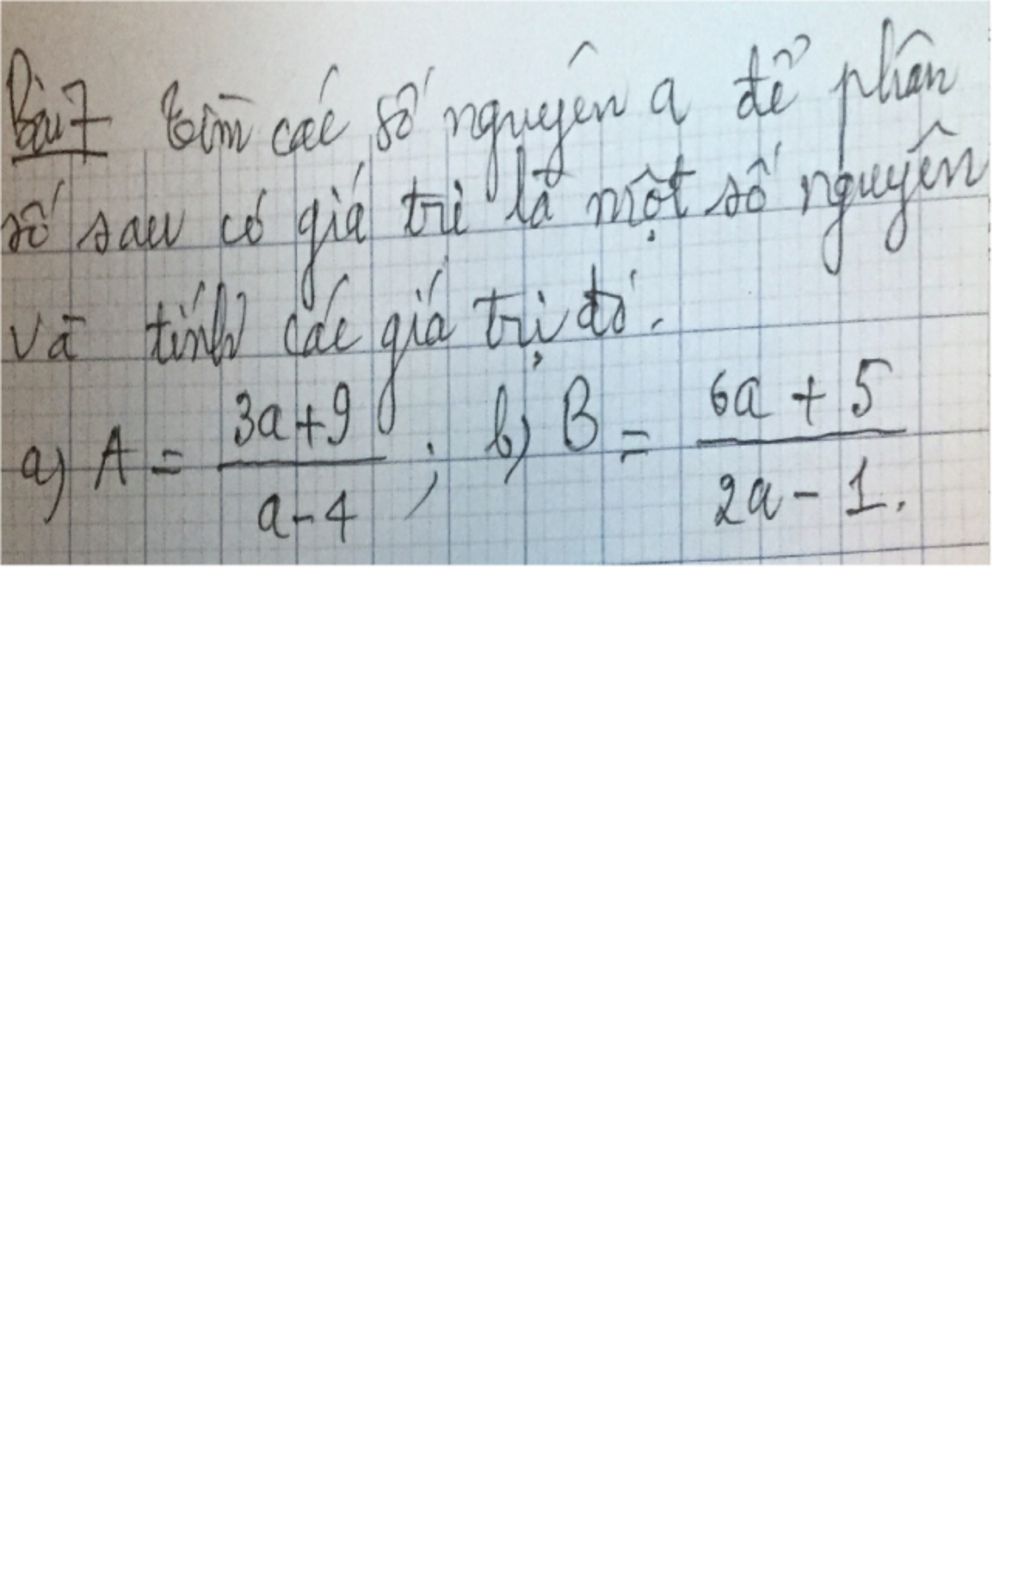 Bài 7 Tìm các số nguyên a để phân
số sau có giá trị là một số nguyên
và tính các giá trị đó.
a) A = \frac{3a+9}{a-4} ; b) B = \frac{6a+5}{2a-1}.